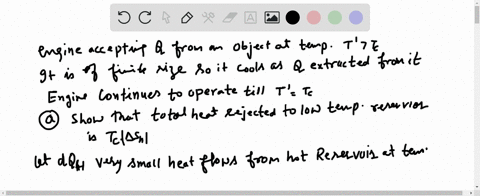 Engine accepting Q from an object at temp. T' > Tc
It is of finite size so it cools as Q extracted from it
Engine continues to operate till T' = Tc
(a) Show that total heat rejected to low temp. reservior
is Tc|ΔSh|
let dQH very small heat flows from hot Reservoir at tem.